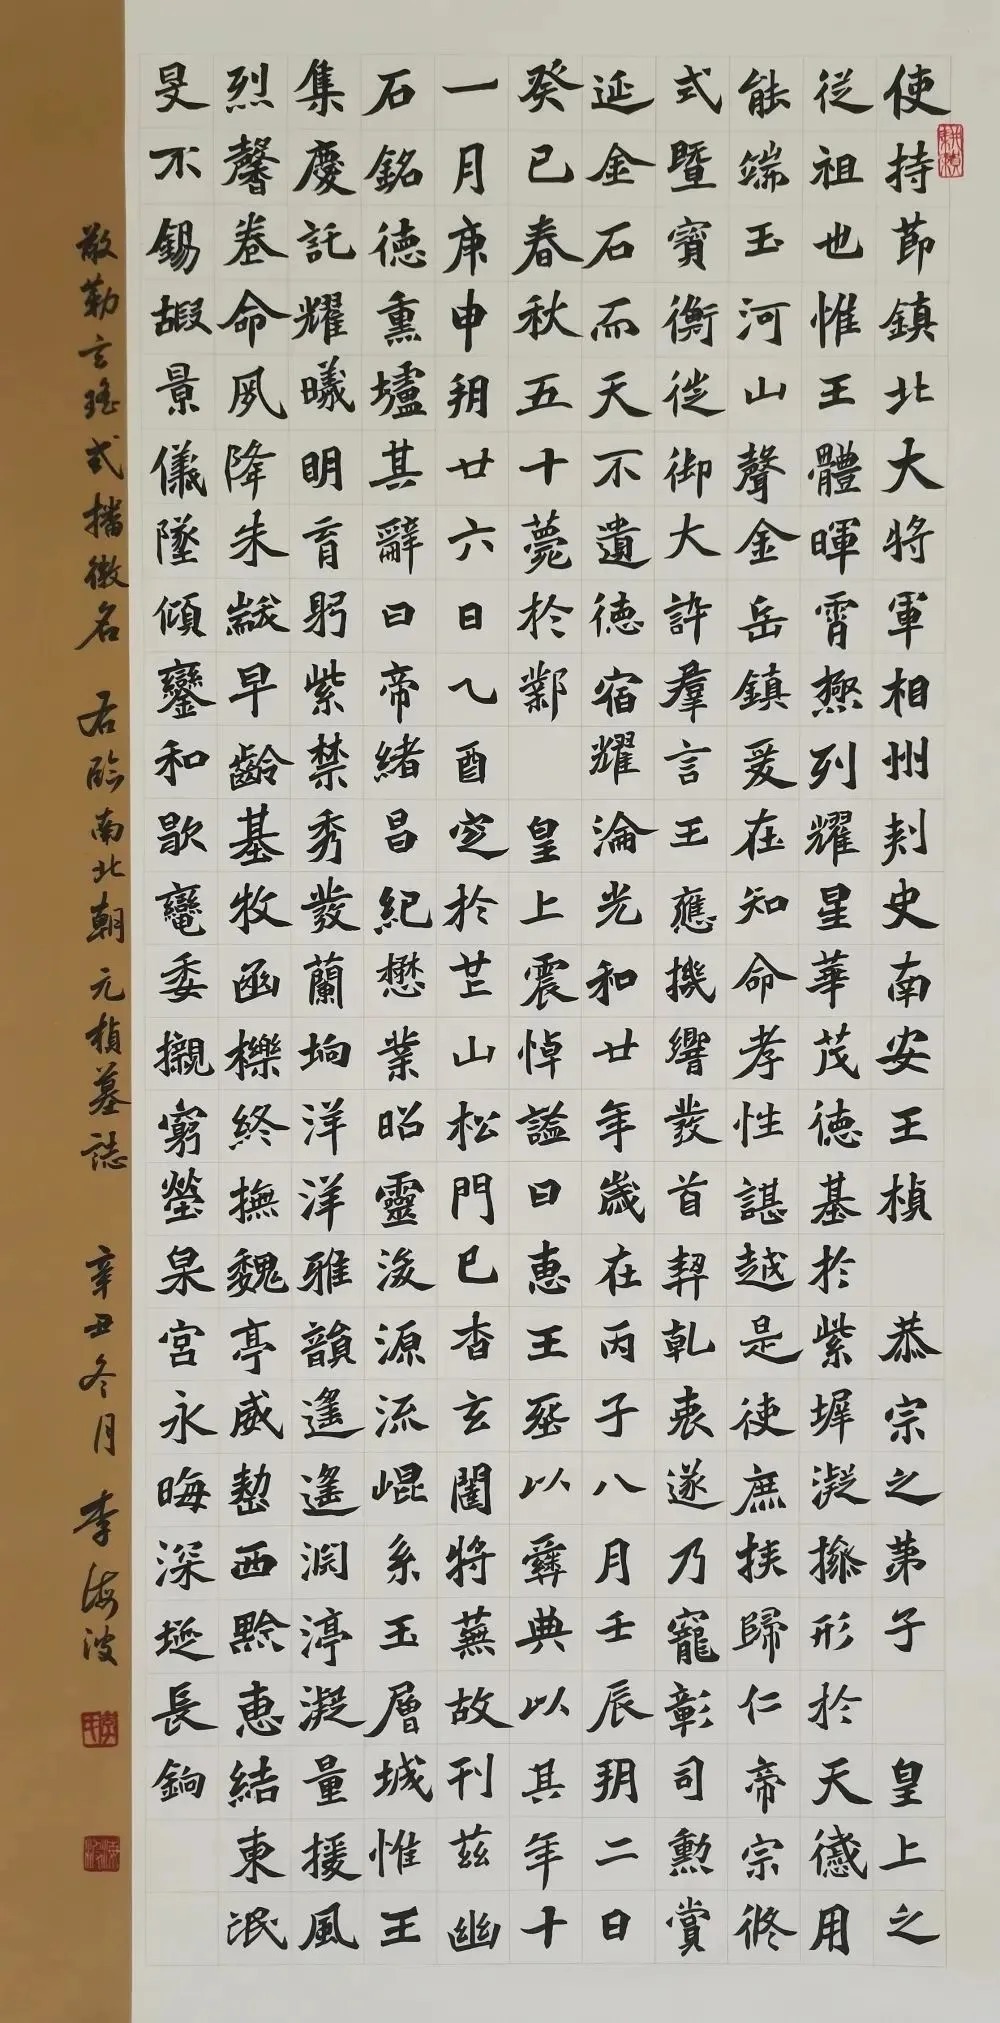 使持節鎮北大將軍相州刺史南安王楨 恭宗之第子 皇上之
從祖也惟王體暉霄極列耀星華茂德基於紫墀凝操形於天感用
能端玉河山聲金岳鎮爰在知命孝性諶越是使庶族歸仁帝宗攸
式暨寳衡徙御大訊羣言王應機響發首契乹衷遂乃寵彰司勳賞
延金石而天不遺德宿耀淪光和廿年歲在丙子八月壬辰朔二日
癸巳春秋五十薨於鄴 皇上震悼謚曰惠王塟以彝典以其年十
一月庚申朔廿六日乙酉窆於芒山松門已杳玄闥將蕪故刊茲幽
石銘德熏壚其辭曰帝緒昌紀懋業昭靈浚源流崐系玉層城惟王
集慶託耀曦明育躬紫禁秀發蘭坰洋洋雅韻遙遙淵渟凝量援風
烈馨卷命夙降朱黻早齡基牧函櫟終撫魏亭威懃西黔惠結東氓
旻不錫嘏景儀墜傾鑾和歇鞚委櫬窮塋泉宮永晦深埏長鍧
敬勒玄瑤式播徽名 右臨南北朝元楨墓誌 辛丑冬月 李海波